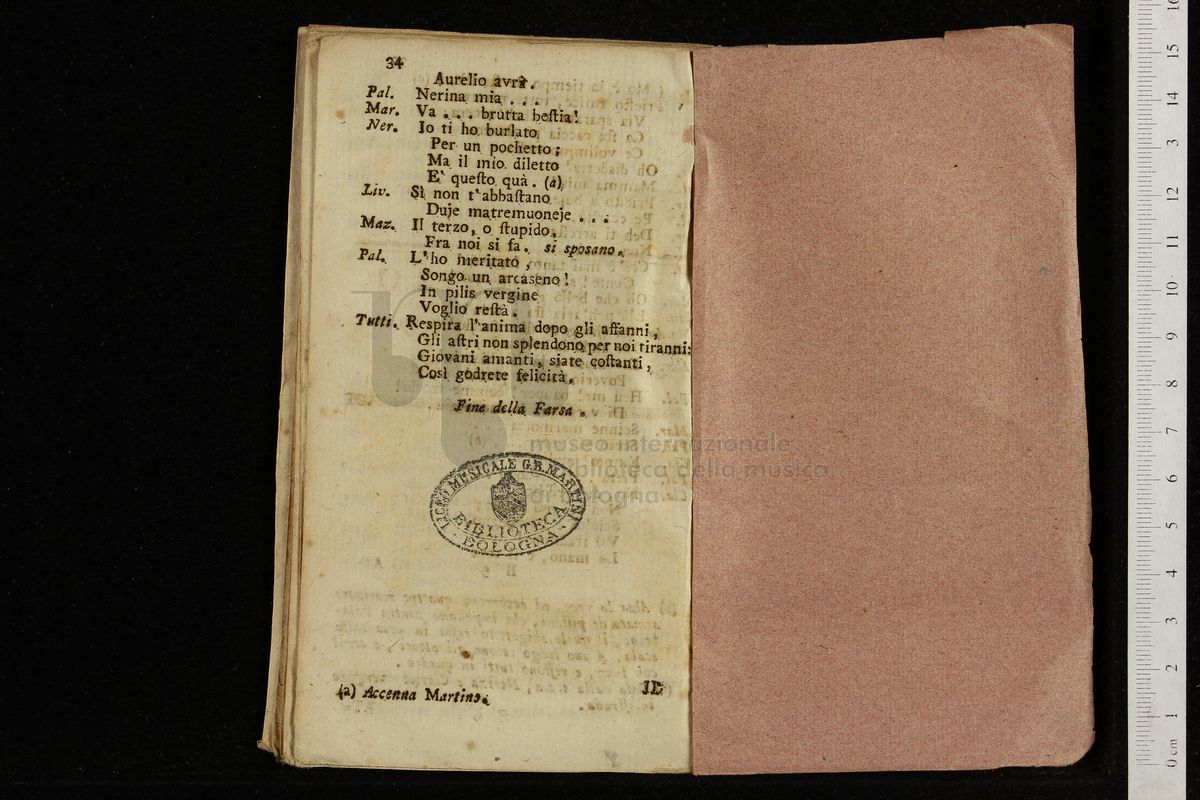 34
Aurelio avrà.
Pal. Nerina mia . . .
Mar. Va . . . brutta beſtia!
Ner. Io ti ho burlato
Per un pochetto;
Ma il mio diletto
E' queſto quà. (a)
Liv. Sì non t'abbaſtano
Duje matremuoneje . . .
Maz. Il terzo, o ſtupido,
Fra noi si fa. si sposano.
Pal. L'ho meritato,
Songo un arcaseno!
In pilis vergine
Voglio reſtà.
Tutti. Respira l'anima dopo gli affanni,
Gli aſtri non splendono per noi tiranni:
Giovani amanti, siate coſtanti,
Così godrete felicità.
Fine della Farsa.
museo internazionale
biblioteca della musica
di bologna
LICEO MUSICALE G.B. MARTINI
BIBLIOTECA
BOLOGNA
(a) Accenna Martino.
0 cm 1 2 3 4 5 6 7 8 9 10 11 12 13 14 15 16